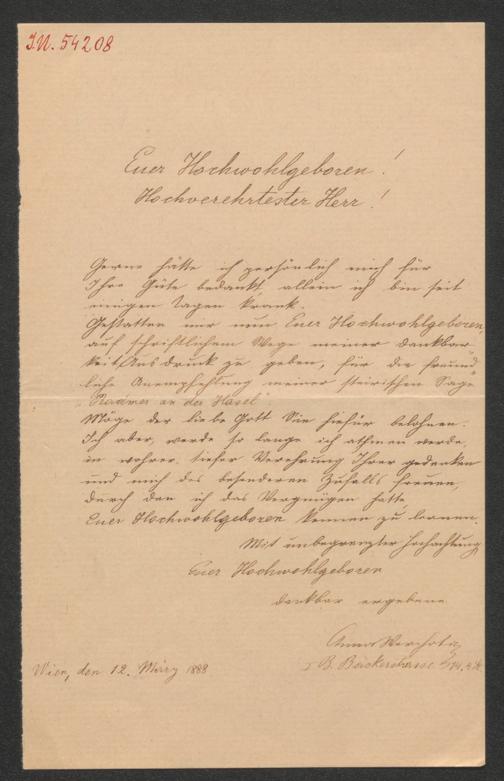 I.N. 54208
Euer Hochwohlgeboren!
Hochverehrtester Herr!
Gerne hätte ich persönlich mich für
Ihre Güte bedankt, allein ich bin seit
einigen Tagen krank.
Gestatten mir nun Euer Hochwohlgeboren,
auf schriftlichem Wege meiner Dankbar
keit Ausdruck zu geben, für die freund
liche Anempfehlung meiner steirischen Sage
"Radmer an der Hasel"
Möge der liebe Gott Sie hiefür belohnen.
Ich aber, werde so lange ich athmen werde,
in wahrer, tiefer Verehrung Ihrer gedenken
und mich des besonderen Zufalls freuen,
durch den ich das Vergnügen hatte
Euer Hochwohlgeboren kennen zu lernen.
Mit unbegrenzter Hochachtung
Euer Hochwohlgeboren
dankbar ergebene
Anna
Wien, den 12. März 1888
B. Bäckerstrasse